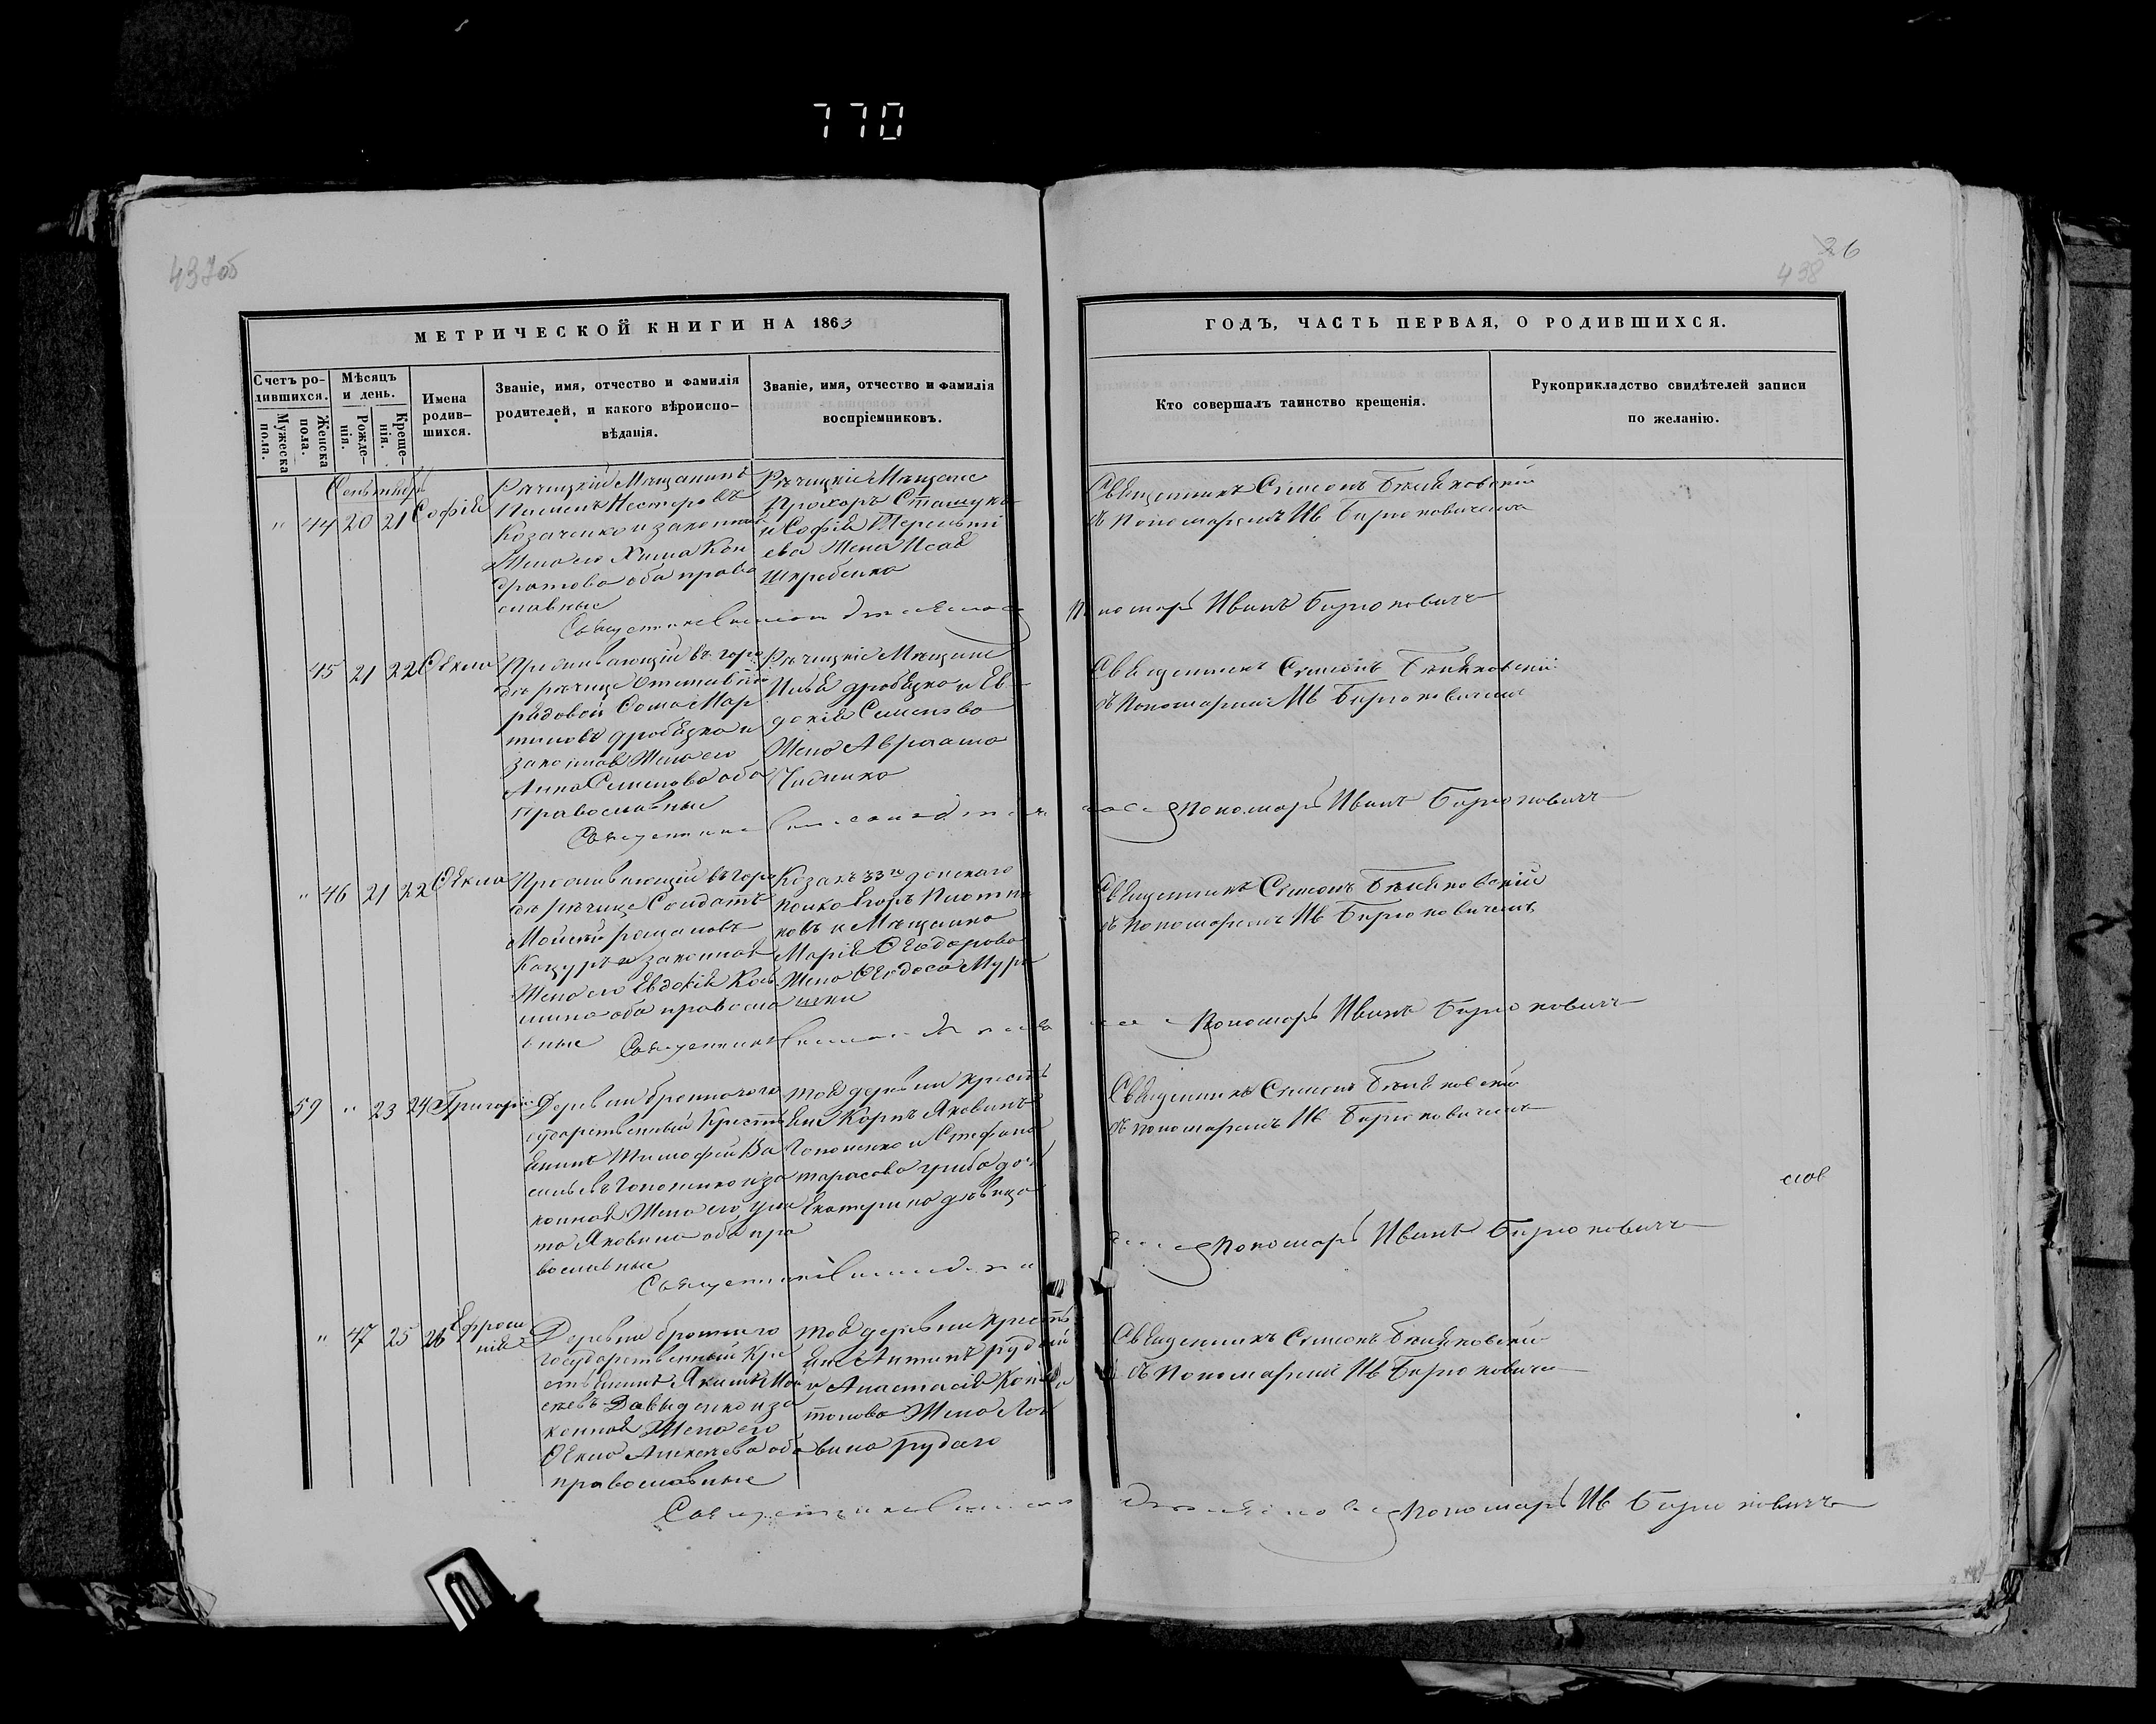 770
26
438
МЕТРИЧЕСКОЙ КНИГИ НА 1863
ГОДЪ, ЧАСТЬ ПЕРВАЯ, О РОДИВШИХСЯ.
Счетъ ро-
дившихся.
Мужеска
пола.
Женска
пола.
Мѣсяцъ
и день.
Рожде-
нія.
Креще-
нія.
Имена
родив-
шихся.
Званіе, имя, отчество и фамилія
родителей, и какого вѣроиспо-
вѣданія.
Званіе, имя, отчество и фамилія
воспріемниковъ.
Кто совершалъ таинство крещенія.
Рукоприкладство свидѣтелей записи
по желанію.
Сентябрь
" 44 20 21 Софія
Рѣчицкій Мѣщанинъ
Пименъ Нестеровъ
Козаченко и законная
Жена его Хима Кон
дратова оба право
славные
Рѣчицкіе Мѣщане
Прохоръ
и Софія
ева Жена Исая
Шкробенка
Священникъ Симеонъ
съ Пономаремъ Ив Бирюковичемъ
Священникъ Симеонъ
Пономарь Иванъ Бирюковичъ
45 21 22 Ѳекла
Проживающій въ горо
дѣ рѣчице Отставной
рядовой Мар
тиновъ дробязко и
законная Жена его
Анна Семенова оба
Православные
Рѣчицкіе Мѣщане
Илья дробязко и Ев
докія Семенова
Жена Авраама
Священникъ Симеонъ
съ Пономаремъ Ив Бирюковичемъ
Священникъ
Пономарь Иванъ Бирюковичъ
" 46 21 22 Ѳекла
Проживающій въ горо
дѣ рѣчице Солдатъ
Моисей романовъ
Кацуръ и законная
Жена его Евдокія Козь
мина оба правосла
вные
Козакъ 33го донскаго
полка Егоръ Плотни
ковъ и Мѣщанка
Марія Ѳеодорова
Жена Ѳеодоса Мура
шки
Священникъ Симеонъ
съ Пономаремъ Ив Бирюковичемъ
Священникъ
Пономарь Иванъ Бирюковичъ
59 " 23 24 Григорій
Деревни броннаго го
сударственный Кресть
янинъ Тимофей Ва
сильевъ Гапоненко и за
конная Жена его Ули
та Яковина оба пра
вославные
той деревни кресть
яне Корпъ Яковинъ
Гапоненко и Стефана
тарасова гриба дочь
Екатерина дѣвица
Священникъ Симеонъ
съ пономаремъ Ив Бирюковичемъ
Священникъ
Пономарь Иванъ Бирюковичъ
" 47 25 26 Ефроси
нія
Деревни броннаго
Государственный Кре
стьянинъ Якимъ Мои
сеевъ Давыденко и за
конная Жена его
Ѳекла Алексѣева оба
православные
той деревни кресть
яне Антипъ рудый
и Анастасія
Жена Лог
вина рудаго
Священникъ Симеонъ
съ Пономаремъ Ив Бирюкович
Священникъ
Пономарь Ив Бирюковичъ